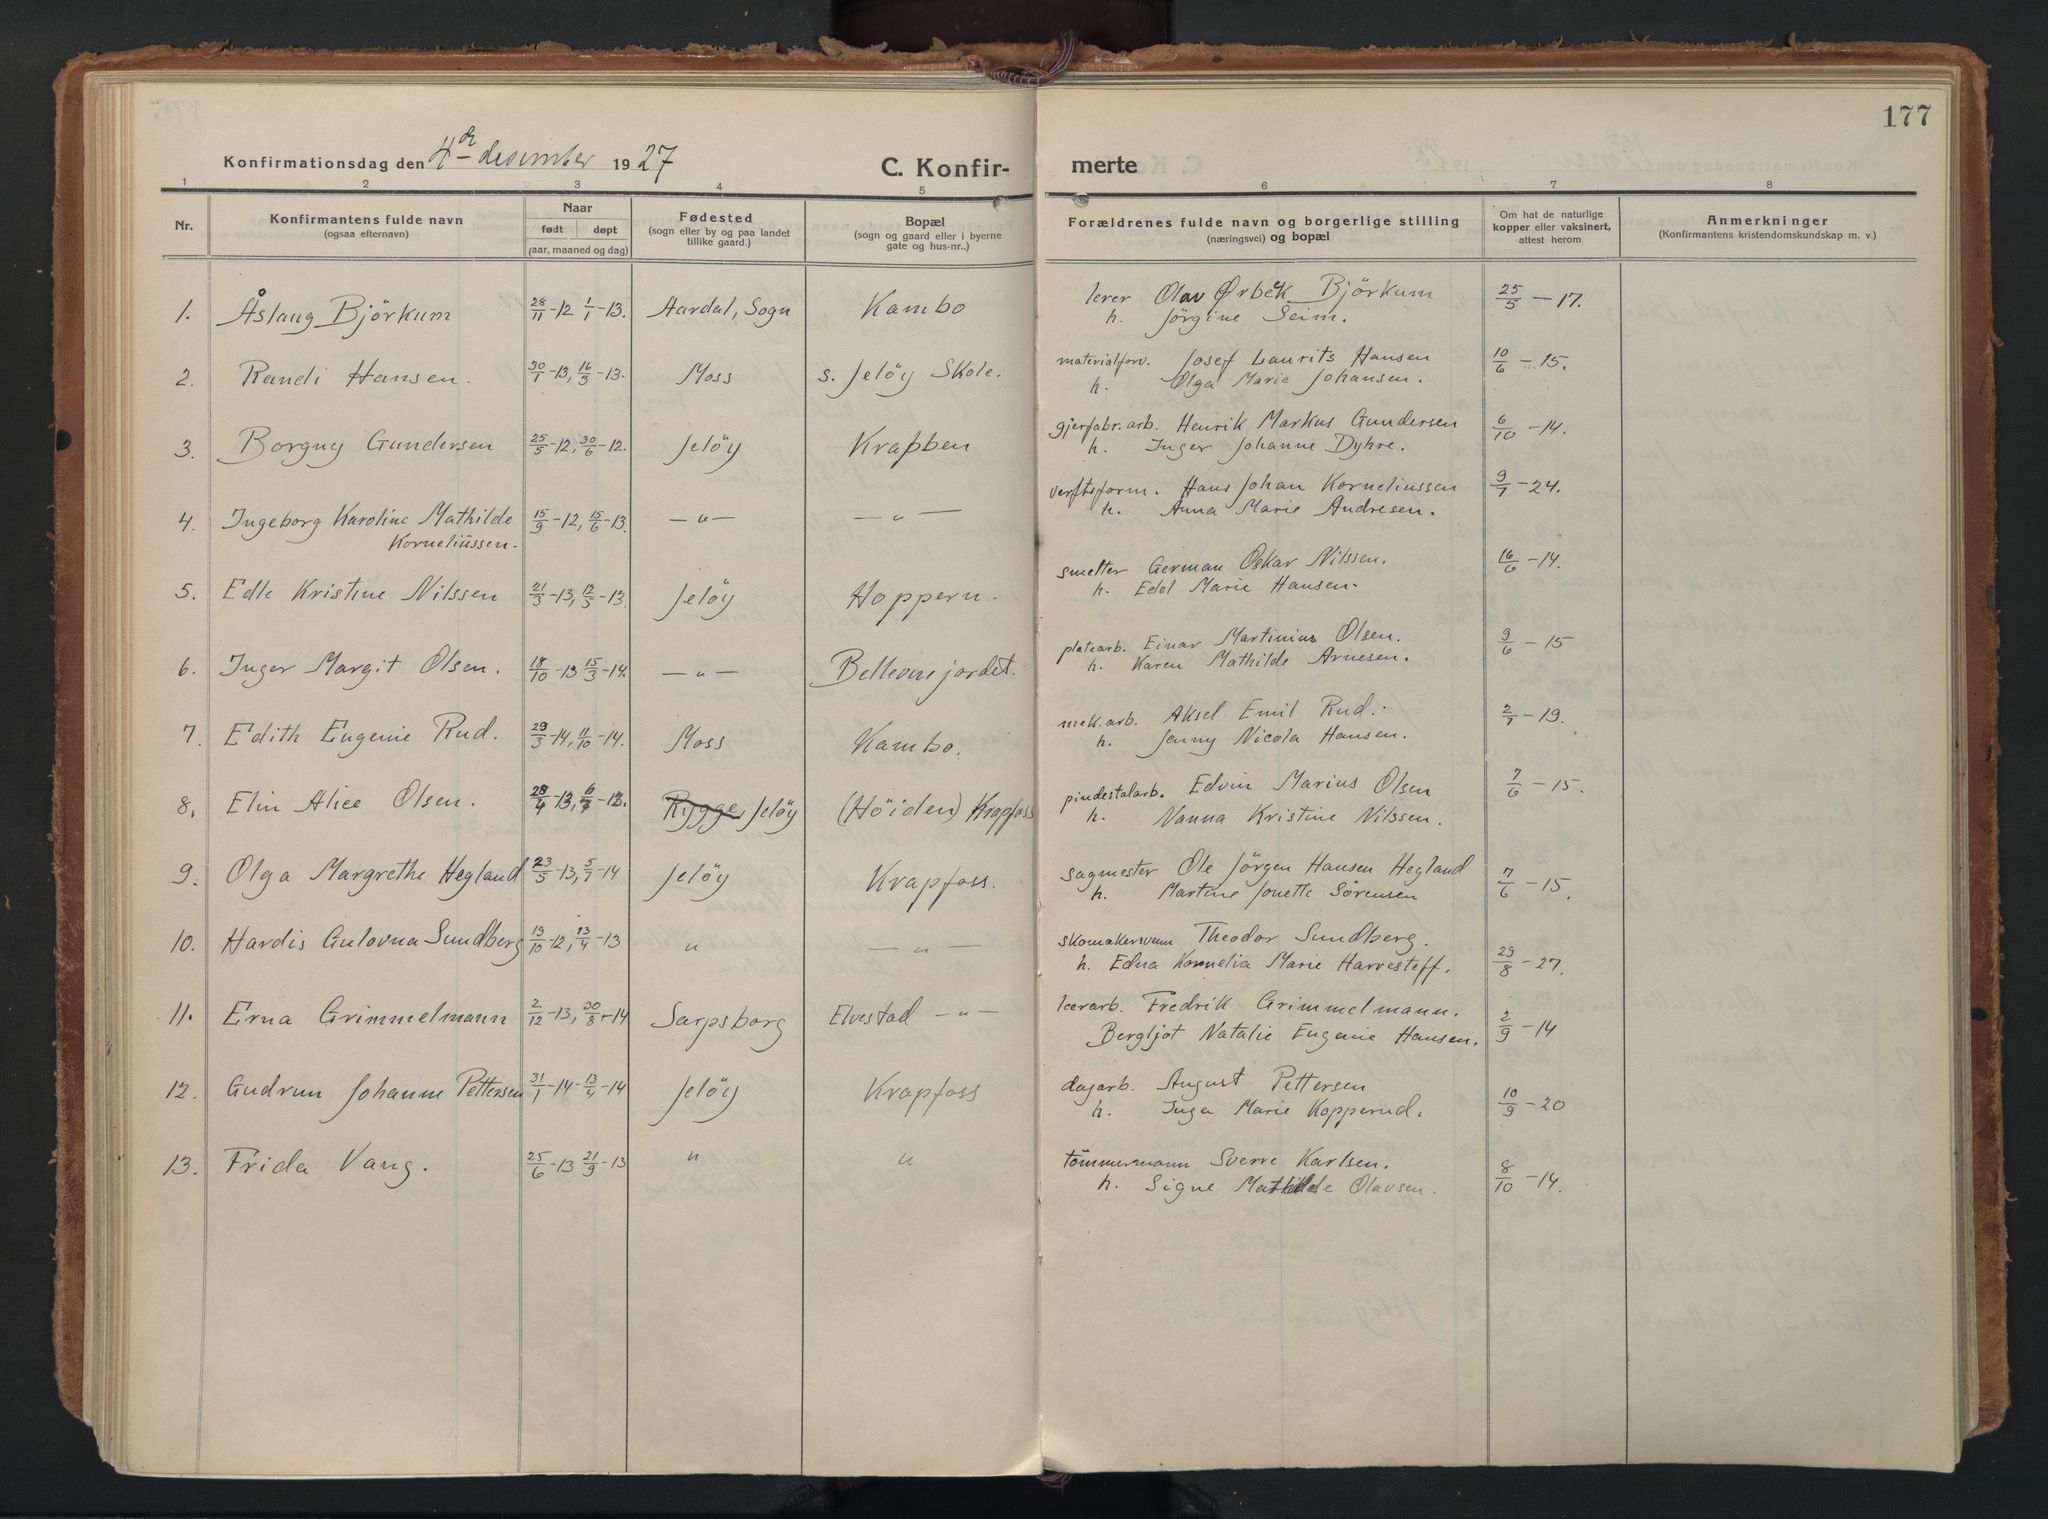 177
Konfirmationsdag den 4de desember 1927
C. Konfir-
merte
1 2 3 4 5 6 7 8
Nr.
Konfirmantens fulde navn
(ogsaa efternavn)
Naar
født døpt
(aar, maaned og dag)
Fødested
(sogn eller by og paa landet
tillike gaard.)
Bopæl
(sogn og gaard eller i byerne
gate og hus-nr..)
Forældrenes fulde navn og borgerlige stilling
(næringsvei) og bopæl
Om hat de naturlige
kopper eller vaksinert,
attest herom
Anmerkninger
(Konfirmantens kristendomskundskap m. v.)
1. Åslaug Björkum 28/11-12 1/1-13. Aardal, Sogn Kambo lerer Olav Ørbek Björkum 25/5-17.
h. Jörgine Seim.
2. Randi Hansen. 30/1-13, 16/3-13. Moss s. Jeløy Skole. materialforv. Josef Laurits Hansen 10/6-15.
h. Olga Marie Johansen.
3. Borguy Gundersen 25/5-12, 30/6-12. Jeløy Krapben gjerfabr. arb. Henrik Markus Gundersen 6/10-14.
h. Inger Johanne Dyhre.
4. Ingeborg Karoline Mathilde 15/9-12, 15/6-13. —"— —"— verftsform. Hans Johan Korneliussen 9/1-24.
Korneliussen. h. Anna Marie Andresen.
5. Edle Kristine Nilssen 21/3-13, 12/5-13. Jeløy Hoppern. smelter German Oskar Nilssen. 16/6-14.
h. Edel Marie Hansen.
6. Inger Margit Olsen. 18/10-13 15/3-14. —"— Bellevuejordet. platearb. Einar Martinius Olsen. 9/6-15
h. Karen Mathilde Arnesen.
7. Edith Eugenie Rud. 29/3-14, 11/10-14. Moss Kambo. mek. arb. Aksel Emil Rud. 2/7-19.
h. Jenny Nicola Hansen.
8. Elin Alice Olsen. 28/4-13, 6/7-13. Rygge, Jeløy (Höiden) Krapfoss pindestalarb. Edvin Marius Olsen 7/6-15.
h. Nanna Kristine Nilssen.
9. Olga Margrethe Hegland 23/5-13, 5/7-14 Jeløy Krapfoss. sagmester Ole Jörgen Hansen Hegland 7/6-15.
h. Martine Jonette Sørensen
10. Hardis Gulovna Sundberg 19/10-12, 13/4-13 " —"— skomakersvenn Theodor Sundberg. 29/8-27.
h. Edna Kornelia Marie Harvesteff.
11. Erna Grimmelmann 2/12-13, 30/8-14 Sarpsborg Elvestad —"— lerarb. Fredrik Grimmelmann. 2/9-14
Bergljot Natalie Eugenie Hansen.
12. Gudrun Johanne Pettersen 31/1-14- 13/4-14 Jeløy Krapfoss dagarb. August Pettersen 10/9-20
h. Inga Marie Kopperud.
13. Frida Vang. 25/6-13 21/9-13 " " tömmermann Sverre Karlsen. 8/10-14.
h. Signe Mathilde Olavsen.